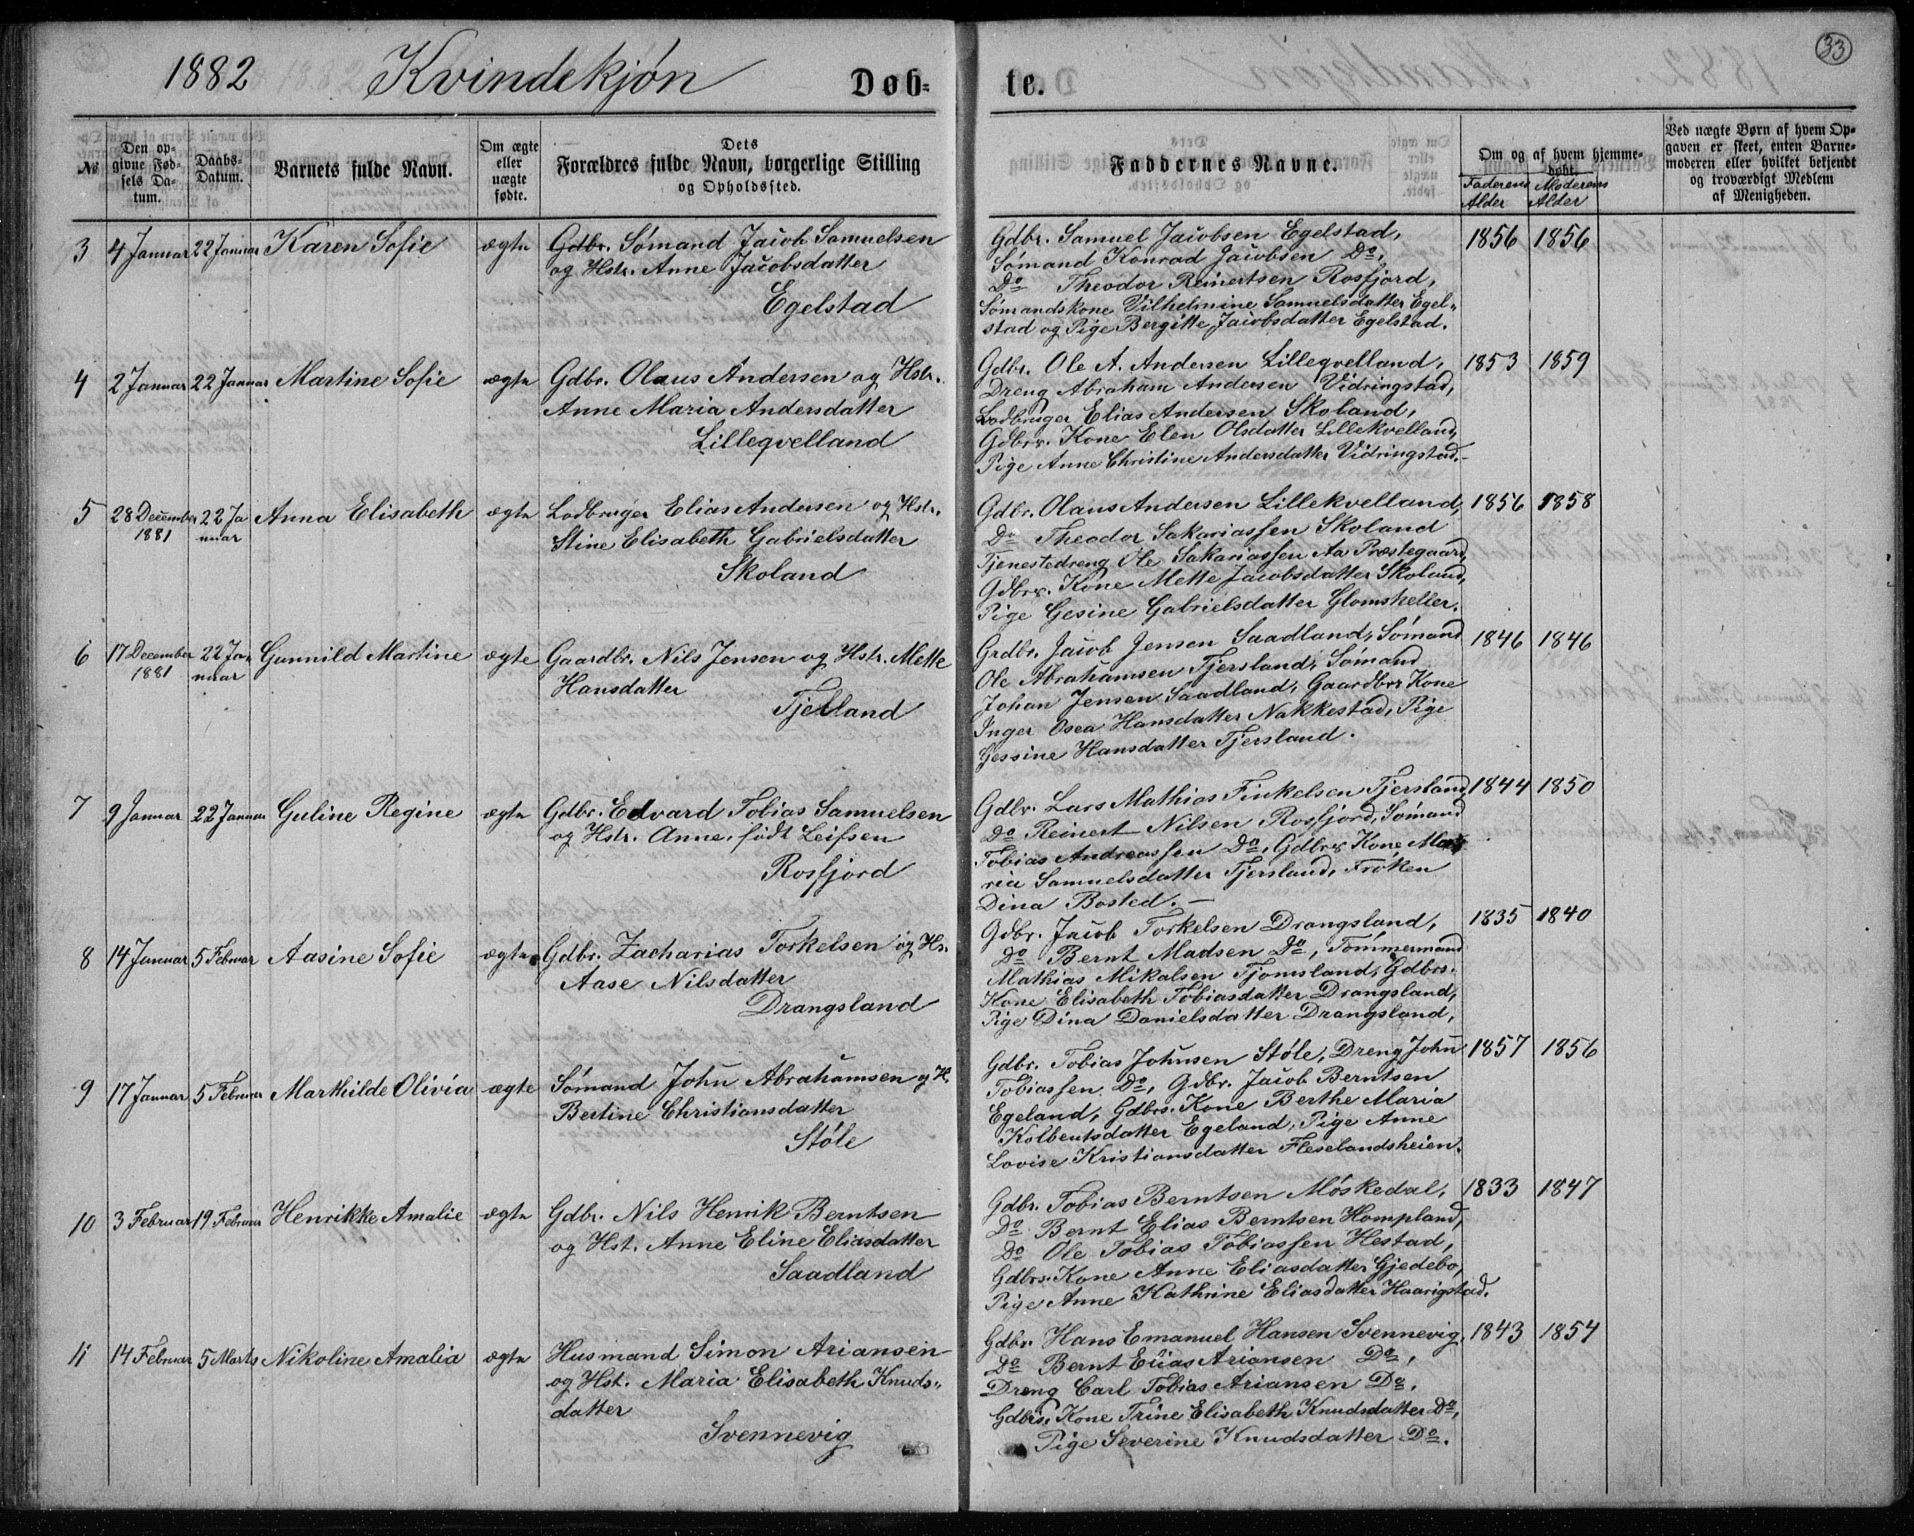 33
1882 Kvindekjøn Døb= te.
№
Den op-
givne Fød-
sels Da-
tum.
Daabs-
Datum.
Barnets fulde Navn.
Om ægte
eller
uægte
fødte.
Dets
Forældres fulde Navn, borgerlige Stilling
og Opholdssted.
Faddernes Navne.
Om og af hvem hjemme-
døbt.
Faderens
Alder
Moderens
Alder
Ved uægte Børn af hvem Op-
gaven er skeet, enten Barne-
moderen eller hvilket bekjendt
og troværdigt Medlem
af Menigheden.
3 4 Januar 22 Januar Karen Sofie ægte Gdbr. Sømand Jacob Samuelsen
og Hstr. Anne Jacobsdatter
Egelstad
Gdbr. Samuel Jacobsen Egelstad, 1856 1856
Sømand Konrad Jacobsen Do,
Do Theodor Reinertsen Rosfjord,
Sømandskone Vilhelmine Samuelsdatter Egel-
stad og Pige Bergitte Jacobsdatter Egelstad.
4 2 Januar 22 Januar Martine Sofie ægte Gdbr. Olaus Andersen og Hstr.
Anne Maria Andersdatter
Lilleqvelland
Gdbr. Ole A. Andersen Lilleqvelland, 1853 1859
Dreng Abraham Andersen Vidringstad,
Lodbruger Elias Andersen Skoland,
Gdbrs. Kone Elen Olsdatter Lillekvelland,
Pige Anne Christine Andersdatter Vidringstad.
5 28 December 22 Ja Anna Elisabeth ægte Lodbruger Elias Andersen og Hstr.
1881 nuar
Stine Elisabeth Gabrielsdatter
Skoland
Gdbr. Olaus Andersen Lillekvelland, 1856 1858
Do Theodor Sakariassen Skoland
Tjenestedreng Ole Sakariassen Aa Præstegaard,
Gdbrs. Kone Mette Jacobsdatter Skoland,
Pige Gesine Gabrielsdatter Glomsheller.
6 17 December 22 Ja Gunnild Martine ægte Gaardbr. Nils Jensen og Hstr. Mette
1881 nuar
Hansdatter
Tjelland
Grdbr. Jacob Jensen Saadland, Sømand 1846 1846
Ole Abrahamsen Tjersland, Sømand
Johan Jensen Saadland, Gaardbrs Kone
Inger Osea Hansdatter Nakkestad, Pige
Gessine Hansdatter Tjersland.
7 9 Januar 22 Januar Guline Regine ægte Gdbr. Edvard Tobias Samuelsen
og Hstr. Anne, født Leifsen
Rosfjord
Gdbr. Lars Mathias Finkelsen Tjersland 1844 1850
Do Reinert Nilsen Rosfjord, Sømand
Tobias Andreassen Do, Gdbrs Kone Ma
ria Samuelsdatter Tjersland, Frøken
Dina Bosted.
8 14 Januar 5 Februar Aasine Sofie ægte Gdbr. Zacharias Torkelsen og Hs.
Aase Nilsdatter
Drangsland
Gdbr. Jacob Torkelsen Drangsland, 1835 1840
Do Bernt Madsen Do, Tømmermand
Mathias Mikalsen Tjomsland, Gdbrs.
Kone Elisabeth Tobiasdatter Drangsland,
Pige Dina Danielsdatter Drangsland,
9 17 Januar 5 Februar Marthilde Olivia ægte Sømand John Abrahamsen og H.
Bertine Christiansdatter
Støle
Gdbr. Tobias Johnsen Støle, Dreng John 1857 1856
Tobiassen Do, Gdbr. Jacob Berntsen
Egeland, Gdbrs. Kone Berthe Maria
Kolbentsdatter Egeland, Pige Anne
Lovise Kristiansdatter Fleselandsheien.
10 3 Februar 19 Februar Henrikke Amalie ægte Gdbr. Nils Henrik Berntsen
og Hst. Anne Eline Eliasdatter
Saadland
Gdbr. Tobias Berntsen Møskedal, 1833 1847
Do Bernt Elias Berntsen Hompland,
Do Ole Tobias Tobiassen Hestad,
Gdbrs. Kone Anne Eliasdatter Gjedebo,
Pige Anne Kathrine Eliasdatter Haarigstad.
11 14 Februar 5 Marts Nikoline Amalia ægte Husmand Simon Ariansen
og Hst. Maria Elisabeth Knuds-
datter
Svennevig
Gdbr. Hans Emanuel Hansen Svennevig. 1843 1854
Do Bernt Elias Ariansen Do,
Dreng Carl Tobias Ariansen Do,
Gdbrs. Kone Trine Elisabeth Knudsdatter Do,
Pige Severine Knudsdatter Do.